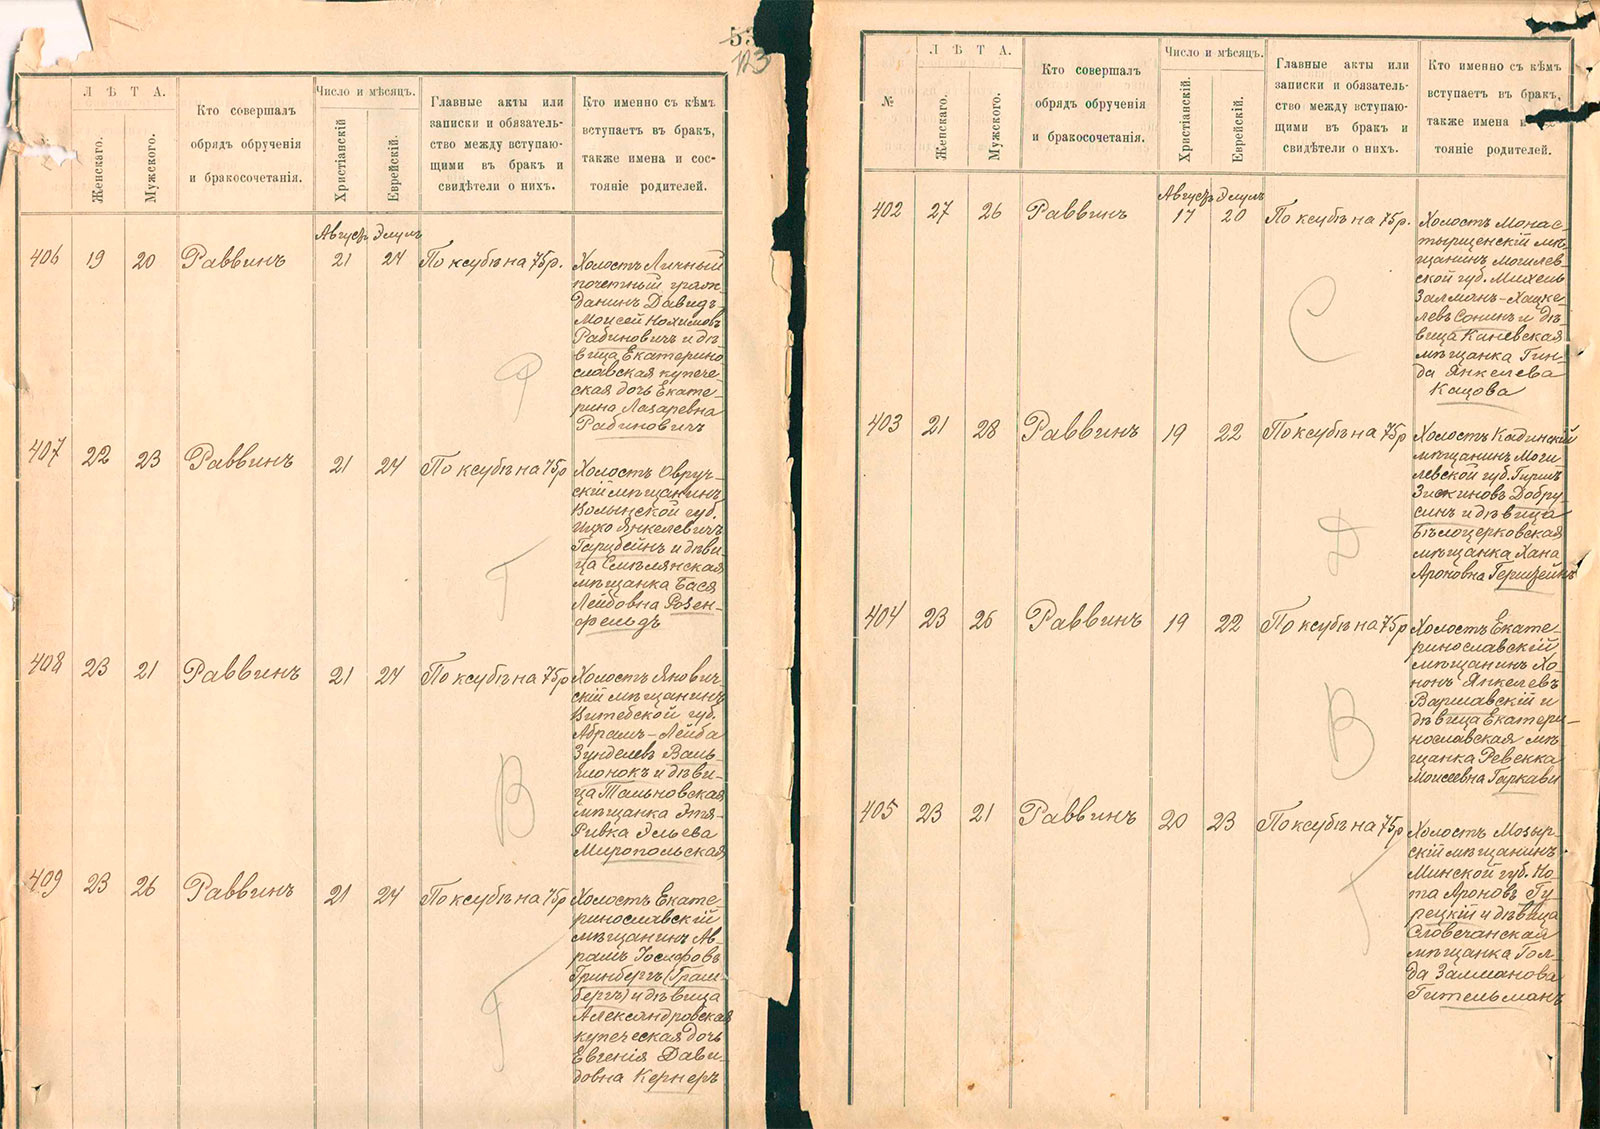 53
123
№
ЛѢТА.
Женскаго.
Мужского.
Кто совершалъ
обрядъ обрученія
и бракосочетанія.
Число и мѣсяцъ.
Христіанскій
Еврейскій.
Главные акты или
записки и обязатель-
ство между вступаю-
щими въ бракъ и
свидѣтели о нихъ.
Кто именно съ кѣмъ
вступаетъ въ бракъ,
также имена и сос-
тояніе родителей.
Августъ Элулъ
406 19 20 Раввинъ 21 24 По ксубѣ на 75 р.
Холостъ Личный
почетный граж-
данинъ Давидъ-
Моисей Нохимовъ
Рабиновичъ и дѣ-
вица Екатерино
славская купече-
ская дочь Екате-
рина Лазаревна
Рабиновичъ
407 22 23 Раввинъ 21 24 По ксубѣ на 75 р
Холостъ Овруч-
скій мѣщанинъ
Волынской губ.
Ицко Янкелевичъ
Гарцбейнъ и дѣви-
ца Смѣлянская
мѣщанка Бася
Лейбовна Розен-
фельдъ
408 23 21 Раввинъ 21 24 По ксубѣ на 75 р
Холостъ Янович-
скій мѣщанинъ
Витебской губ.
Абрамъ-Лейба
Зунделевъ Валь-
шонокъ и дѣви-
ца Тальновская
мѣщанка Этя-
Ривка Эльева
Миропольская
409 23 26 Раввинъ 21 24 По ксубѣ на 75 р
Холостъ Екате-
ринославскій
мѣщанинъ Ав-
рамъ Іосифовъ
Гринбергъ (Грам-
бергъ) и дѣвица
Александровская
купеческая дочь
Евгенія Дави-
довна Кернеръ
Р
Г
В
Г
№
ЛѢТА.
Женскаго.
Мужского.
Кто совершалъ
обрядъ обрученія
и бракосочетанія.
Число и мѣсяцъ.
Христіанскій
Еврейскій.
Главные акты или
записки и обязатель-
ство между вступаю-
щими въ бракъ и
свидѣтели о нихъ.
Кто именно съ кѣмъ
вступаетъ въ бракъ,
также имена и
тояніе родителей.
Августъ Элулъ
402 27 26 Раввинъ 17 20 По ксубѣ на 75 р.
Холостъ Монас-
тырщенскій мѣ-
щанинъ Могилев-
ской губ. Михель
Залманъ-Хацке-
левъ Сонинъ и дѣ-
вица Каневская
мѣщанка Гин-
да Янкелева
Кацова
403 21 28 Раввинъ 19 22 По ксубѣ на 75 р
Холостъ Кадинскій
мѣщанинъ Моги
левской губ. Гиршъ
Зискиновъ Добру-
синъ и дѣвица
Бѣлоцерковская
мѣщанка Хана
Ароновна Герцгейнъ
404 23 25 Раввинъ 19 22 По ксубѣ на 75 р
Холостъ Екате-
ринославскій
мѣщанинъ Хо-
нонъ Янкелевъ
Варшавскій и
дѣвица Екатери-
нославская мѣ-
щанка Ревекка
Моисеевна Гаркави
405 23 21 Раввинъ 20 23 По ксубѣ на 75 р
Холостъ Мозыр-
скій мѣщанинъ
Минской губ. Но-
та Ароновъ Ту-
рецкій и дѣвица
Словечанская
мѣщанка Гол-
да Залманова
Гительманъ
С
Д
В
Г